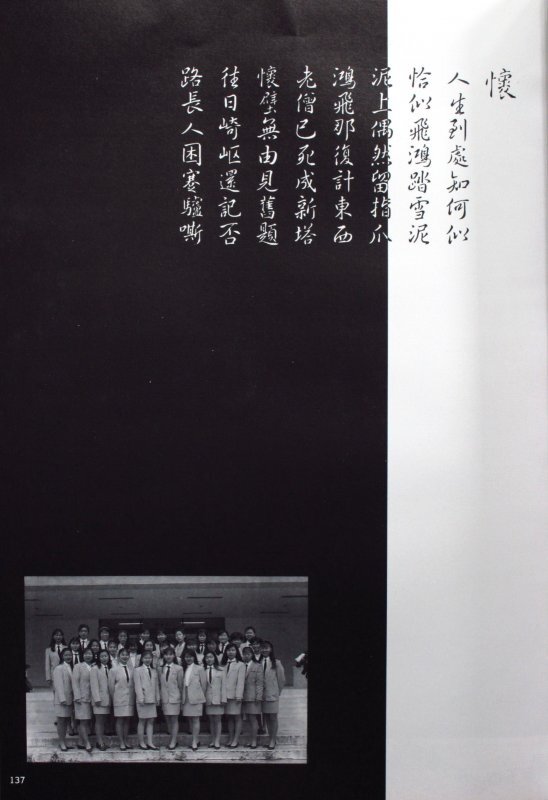 懷
人生到處知何似
恰似飛鴻踏雪泥
泥上偶然留指爪
鴻飛那復計東西
老僧已死成新塔
懷壁無由見舊題
往日崎岖還記否
路長人困蹇驢嘶
137